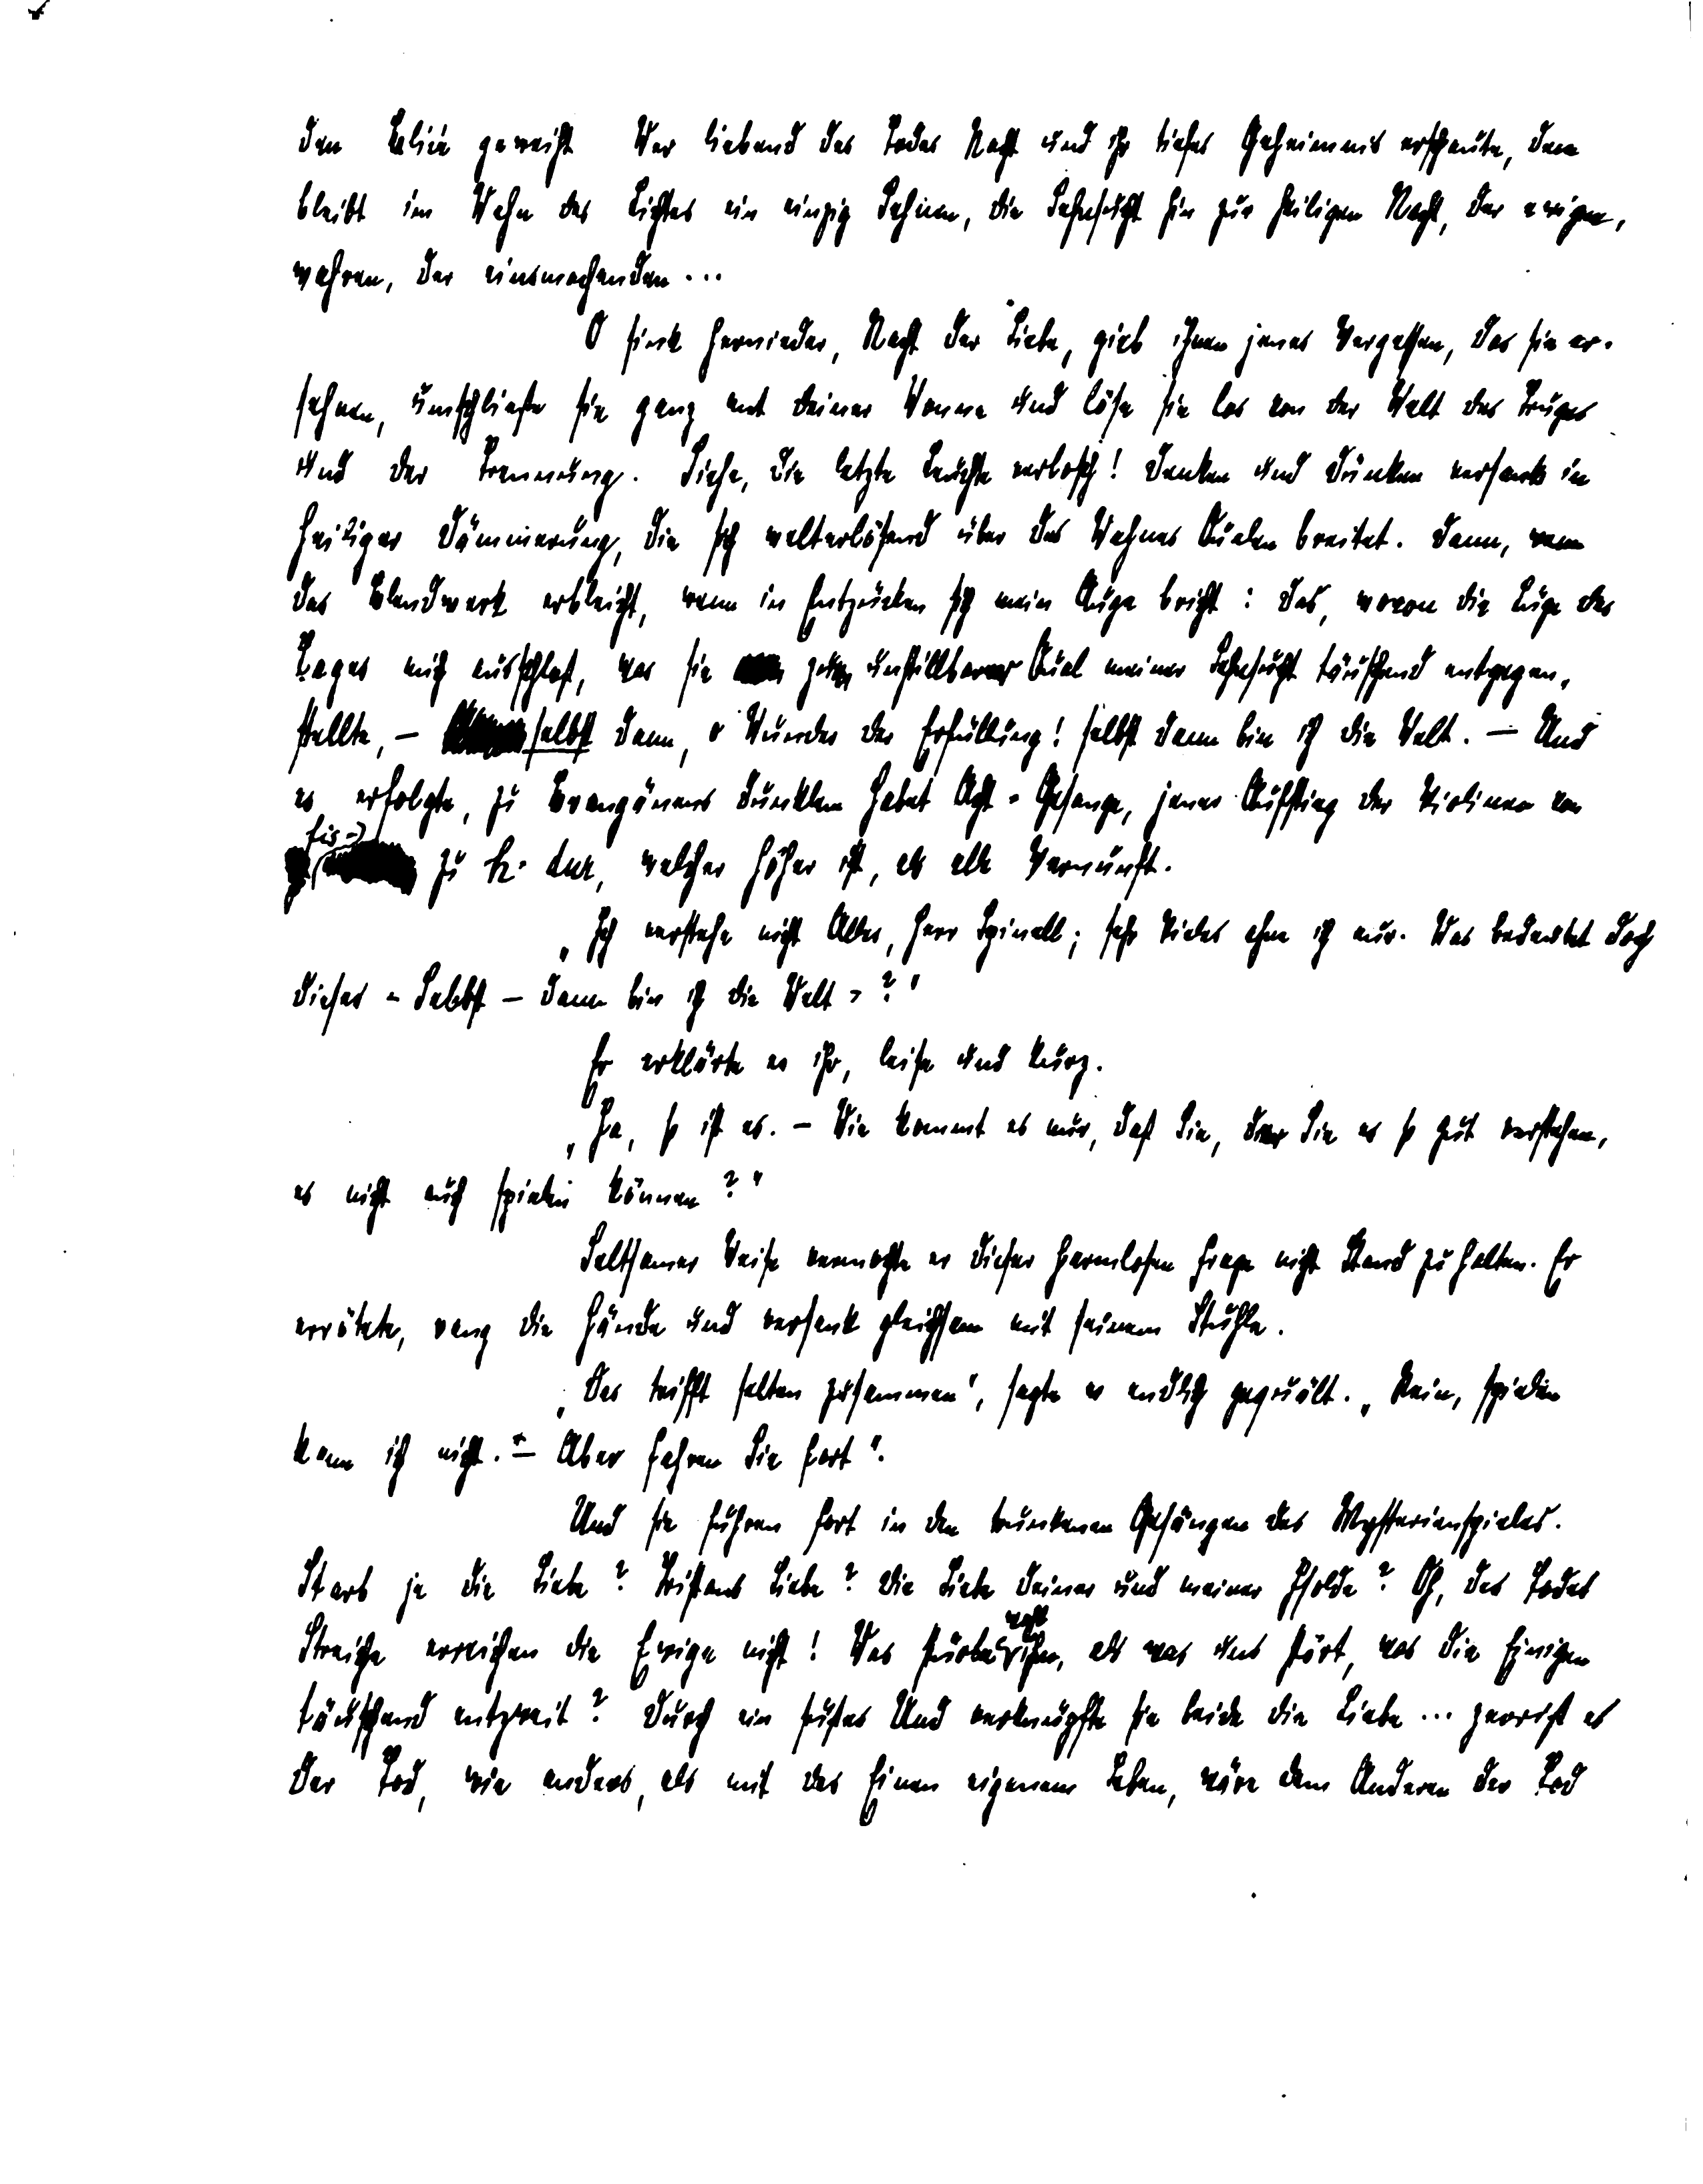 den Blick geweiht. Wer liebend des Todes Nacht und ihr tiefes Geheimnis erschaute, dem
bleibt im Wahn des Lichtes ein einzig Sehnen, die Sehnsucht hin zur heiligen Nacht, der ewigen,
wahren, der einsmachenden ...
O sink hernieder, Nacht der Liebe, gieb ihnen jenes Vergessen, das sie er-
sehnen, umschließe sie ganz mit deiner Wonne und löse sie los von der Welt des Truges
und der Trennung. Siehe, die letzte Leuchte verlosch! Denken und Dünken versank in
heiliger Dämmerung, die sich welterlösend über des Wahnes Qualen breitet. Dann, wenn
das Blendwerk erbleicht, wenn in Entzücken sich mein Auge bricht: Das, wovon die Lüge des
Tages mich ausschloß, was sie zu unstillbarer Qual meiner Sehnsucht täuschend entgegen-
stellte, – selbst dann, o Wunder der Erfüllung! selbst dann bin ich die Welt. – Und
es erfolgte, zu Brangänens dunklem Habet Acht-Gesange, jener Aufstieg der Violinen von
fis-
zu h-dur, welcher höher ist, als alle Vernunft.
„Ich verstehe nicht Alles, Herr Spinell; sehr Vieles ahne ich nur. Was bedeutet doch
dieses – Selbst – dann bin ich die Welt -?"
Er erklärte es ihr, leise und kurz.
„Ja, so ist es. – Wie kommt es nur, daß Sie, der Sie es so gut verstehen,
es nicht auch spielen können?"
Seltsamer Weise vermochte er dieser harmlosen Frage nicht Stand zu halten. Er
errötete, rang die Hände und versank gleichsam mit seinem Stuhle.
„Das trifft selten zusammen", sagte er endlich gequält. „Nein, spielen
kann ich nicht. – Aber fahren Sie fort".
Und sie fuhren fort in den trunkenen Gesängen des Mysterienspieles.
Starb je die Liebe? Tristans Liebe? Die Liebe deiner und meiner Isolde? Oh, des Todes
Streiche erreichen die Ewige nicht! Was stürbe wohl ihm, als was uns stört, was die Einigen
täuschend entzweit? Durch ein süßes Und verknüpfte sie beide die Liebe ... zerriß es
der Tod, wie anders, als mit des Einen eigenem Leben, wäre dem Anderen der Tod